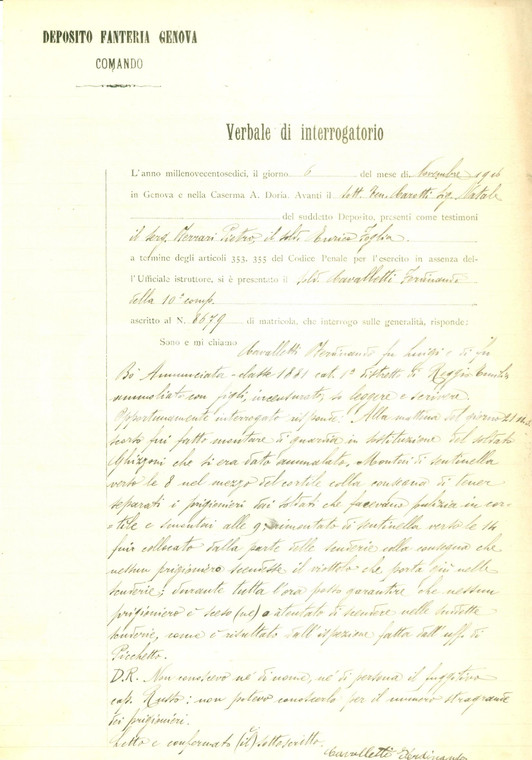 DEPOSITO FANTERIA GENOVA
COMANDO
Verbale di interrogatorio
L'anno millenovecentosedici, il giorno 6 del mese di Novembre 1916
in Genova e nella Caserma A. Doria. Avanti il sott. Ten. Marotti Sig. Natale
del suddetto Deposito, presenti come testimoni
il serg. Ferrari Pietro, il sold. Enrico Foglia.
a termine degli articoli 353, 355 del Codice Penale per l'esercito in assenza del-
l'Ufficiale istruttore, si è presentato il sold. Cavalletti Ferdinando
della 10ª comp.
ascritto al N. 8679 di matricola, che interrogo sulle generalità, risponde:
Sono e mi chiamo Cavalletti Ferdinando fu Luigi e di fu
Bò Annunciata classe 1881 cat. 1ª distretto di Reggio Emilia
ammogliato con figli, incensurato, so leggere e scrivere.
Opportunamente interrogato risponde: Alla mattina del giorno 21
scorso fui fatto montare di guardia in sostituzione del soldato
Ghizzoni che si era dato ammalato. Montai di sentinella
verso le 8 nel mezzo del cortile colla consegna di tener
separati i prigionieri dai soldati che facevano pulizia in cor-
tile e smontai alle 9; rimontato di sentinella verso le 14
fui collocato dalla parte delle scuderie colla consegna che
nessun prigioniero scendesse il viottolo che porta giù nelle
scuderie; durante tutta l'ora posso garantire che nessun
prigioniero è sceso (ne) o attentato di scendere nelle suddette
scuderie, come è risultato dall'ispezione fatta dall'uff. di
Picchetto.
D.R. Non conoscevo nè di nome, nè di persona il fuggitivo
cap. Russo: non potevo conoscerlo per il numero stragrande
dei prigionieri.
Letto e confermato (il) e sottoscritto
Cavalletti Ferdinando